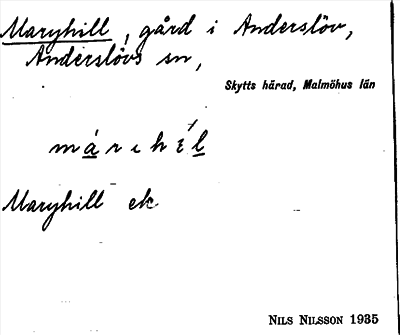 Maryhill, gård i Anderslöv,
Anderslövs sn,
Skytts härad, Malmöhus län
márihíl
Maryhill ek
NILS NILSSON 1935